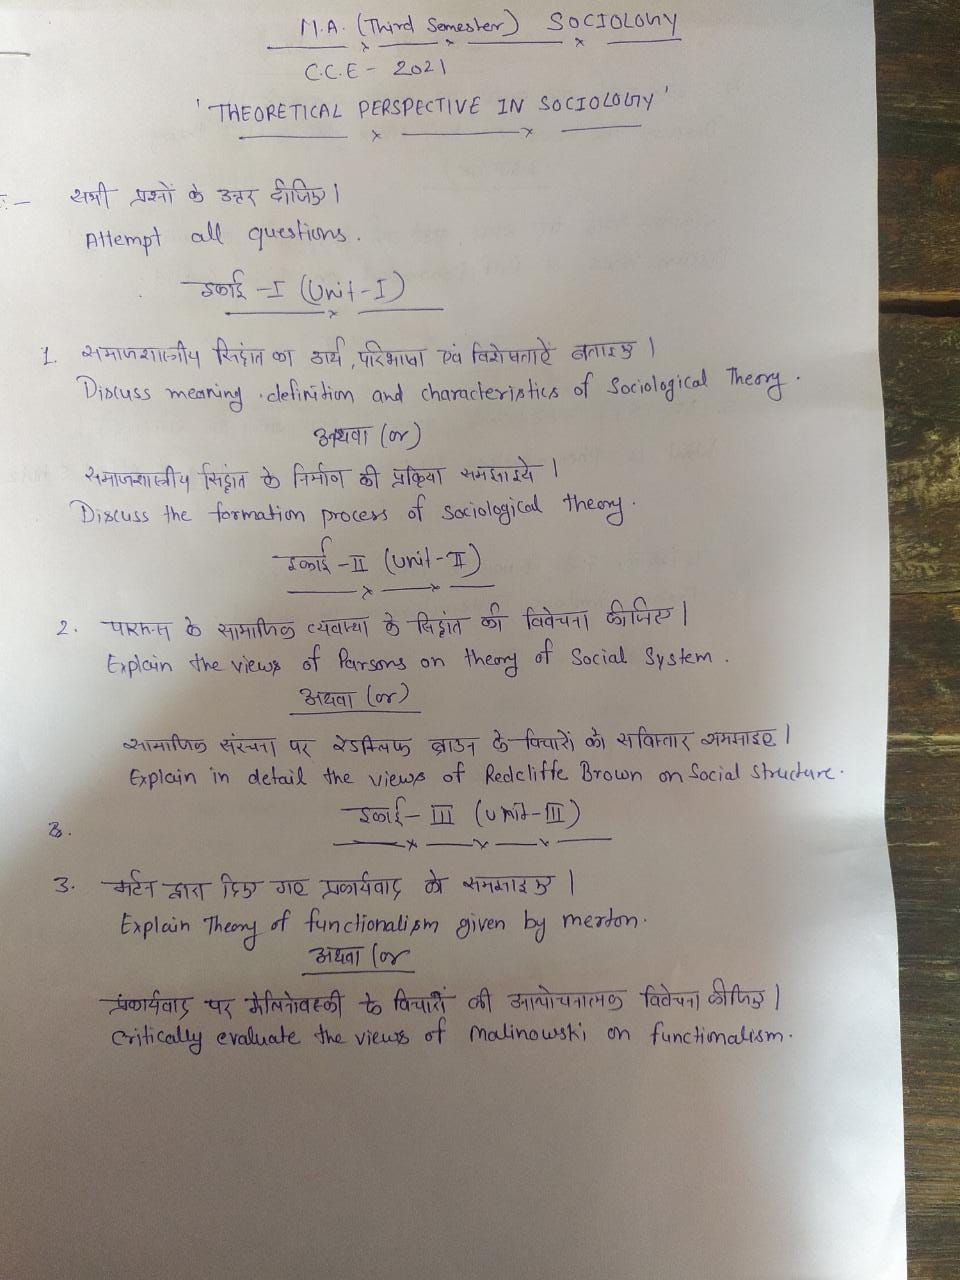 M.A. (Third Semester) SOCIOLOGY
C.C.E - 2021
'THEORETICAL PERSPECTIVE IN SOCIOLOGY'
:- सभी प्रश्नों के उत्तर दीजिए।
Attempt all questions.
इकाई -I (Unit-I)
1. समाजशास्त्रीय सिद्वांत का अर्थ, परिभाषा एवं विशेषताऐं बताइए।
Discuss meaning, definition and characteristics of Sociological Theory.
अथवा (or)
समाजशास्त्रीय सिद्वांत के निर्माण की प्रक्रिया समझाइये।
Discuss the formation process of sociological theory.
इकाई -II (Unit-II)
2. पारसन्स के सामाजिक व्यवस्था के सिद्वांत की विवेचना कीजिए।
Explain the views of Parsons on theory of Social System.
अथवा (or)
सामाजिक संरचना पर रेडक्लिफ ब्राउन के विचारों को सविस्तार समझाइए।
Explain in detail the views of Redcliffe Brown on Social Structure.
इकाई - III (Unit-III)
3.
3. मर्टन द्वारा दिए गए प्रकार्यवाद को समझाइए।
Explain Theory of functionalism given by merton.
अथवा (or
प्रकार्यवाद पर मेलिनोवस्की के विचारों की आलोचनात्मक विवेचना कीजिए।
Critically evaluate the views of Malinowski on functionalism.